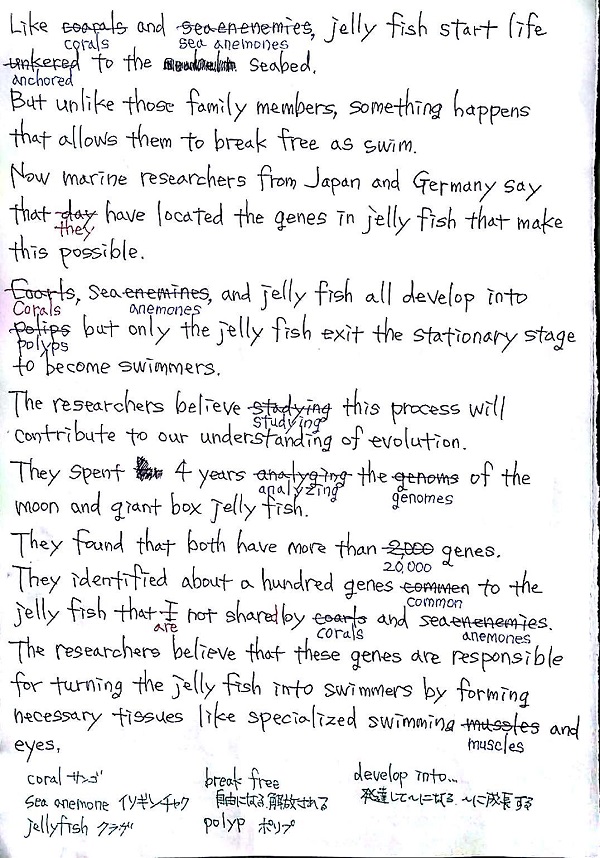 Like coarals and seaenenemies, jelly fish start life
corals sea anelmones
unkered to the seabed.
anchored
But unlike those family members, something happens
that allows them to break free as swim.
Now marine researchers from Japan and Germany say
that day have located the genes in jelly fish that make
they
this possible.
Coarls, Sea enemines, and jelly fish all develop into
Corals anemones
polips but only the jelly fish exit the stationary stage
polyps
to become swimmers.
The researchers believe stadying this process will
studying
contribute to our understanding of evolution.
They spent 4 years analyging the genoms of the
analyzing genomes
moon and giant box jelly fish.
They found that both have more than 2,000 genes.
20,000
They identified about a hundred genes commen to the
common
jelly fish that I not shared by coarls and seaenenemies.
are corals anemones
The researchers believe that these genes are responsible
for turning the jelly fish into swimmers by forming
necessary tissues like specialized swimming mussles and
muscles
eyes.
coral サンゴ break free develop into...
sea anemone イソギンチャク 自由になる、解放される 発達して〜になる、〜に成長する
jellyfish クラゲ polyp ポリプ